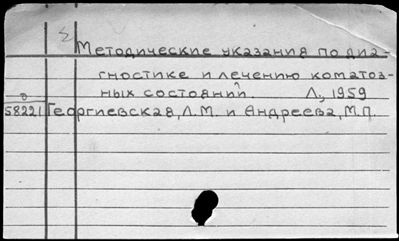 Методические указания по диа-
гностике и лечению коматоз-
ных состояний. Л., 1959
58221 Георгиевская, Л.М. и Андреева, М.П.